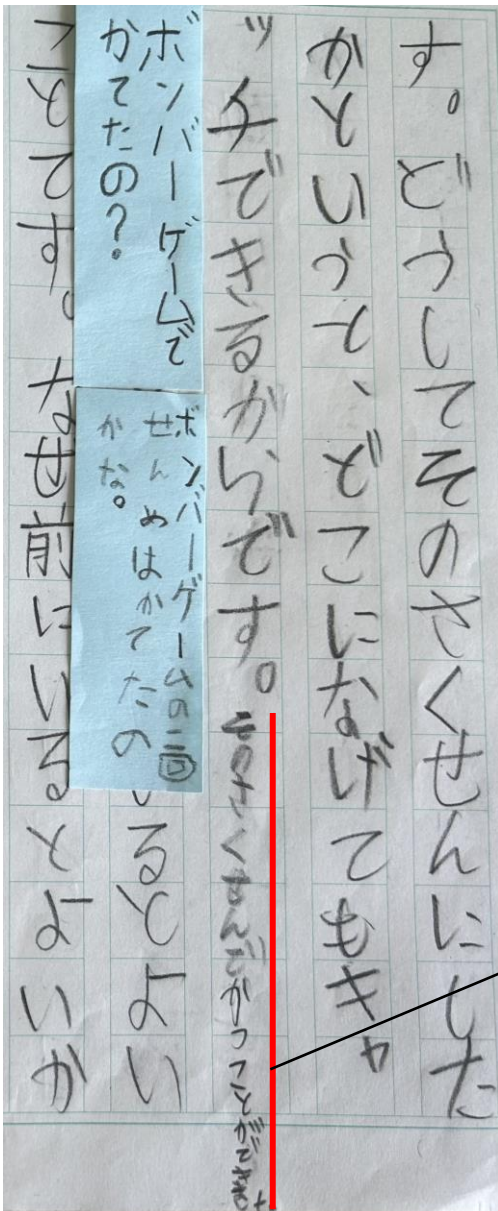 す。どうしてそのさくせんにした
かというと、どこになげてもキャ
ッチできるからです。そのさくせんでかつことができました
ボンバーゲームで
かてたの?
ボンバーゲームの二回
せんめはかてたの
かな。
るとよい
ことです。なせ前にいるとよいか